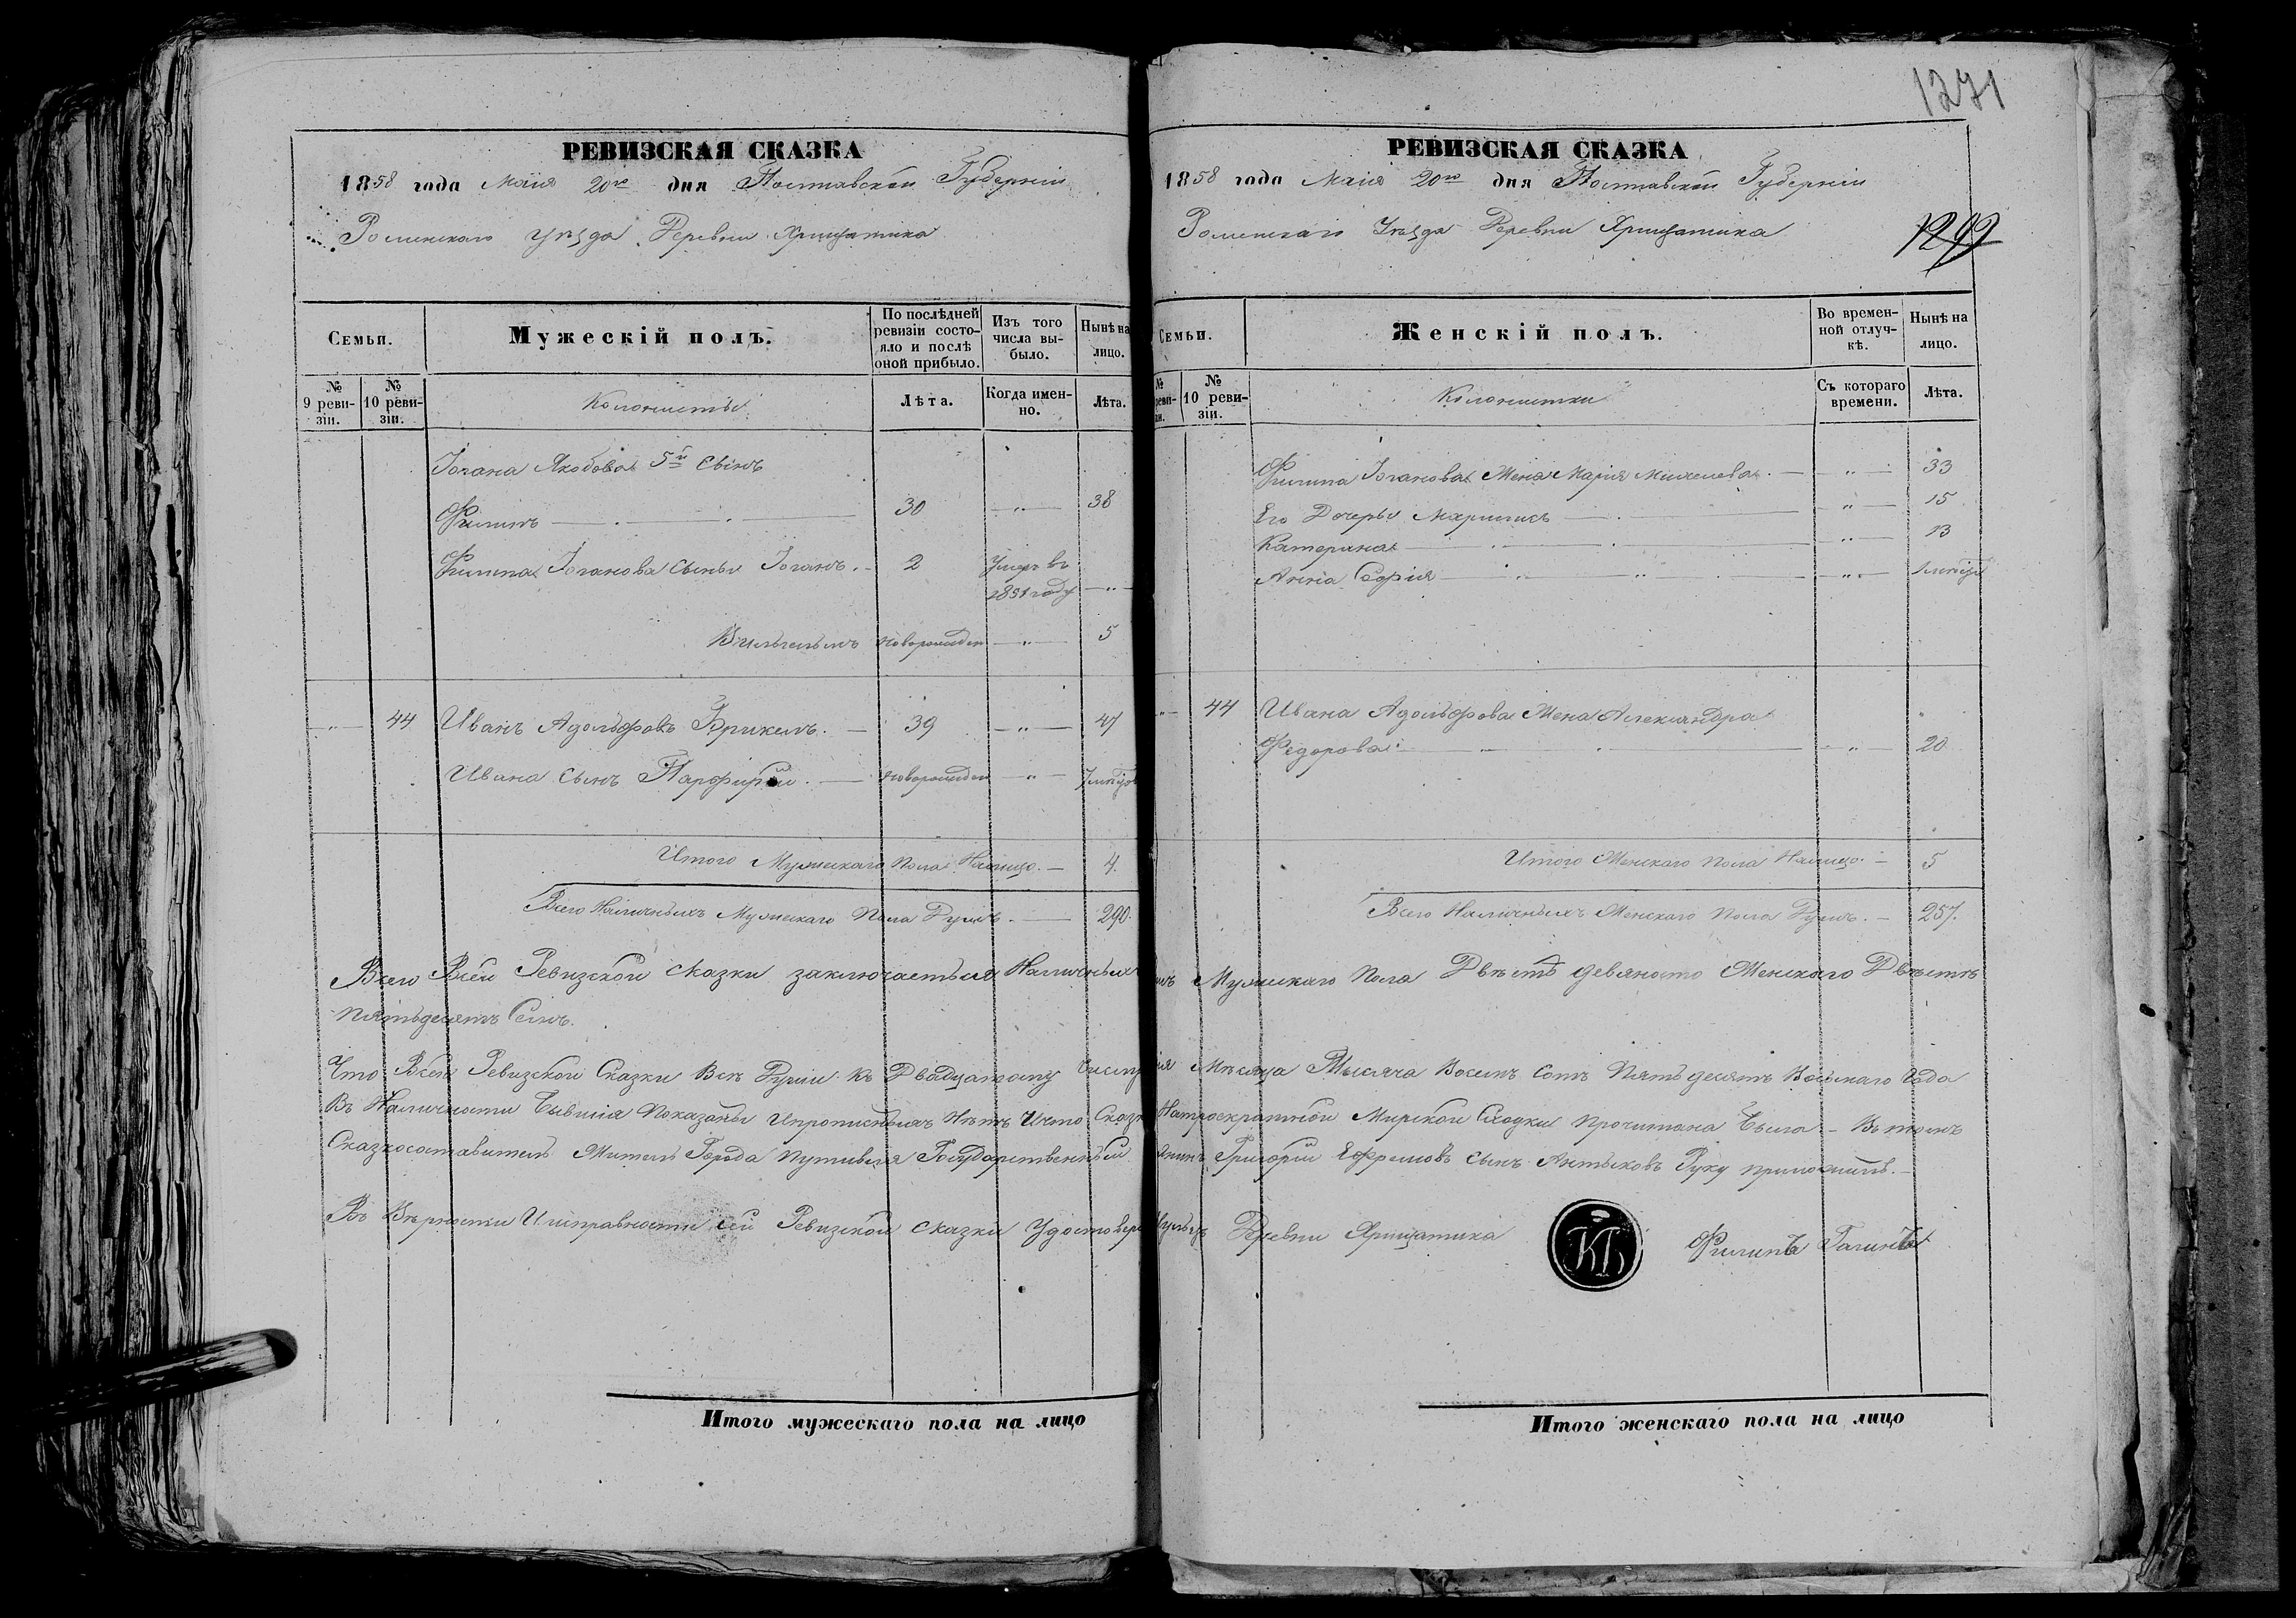 РЕВИЗСКАЯ СКАЗКА
1858 года Маія 20го дня Полтавской Губерніи
Роменского уѣзда Деревни Хрищатика
Семьи.
Мужескій полъ.
По послѣдней ревизіи состояло и послѣ оной прибыло.
Изъ того числа выбыло.
Нынѣ на лицо.
№ 9 ревизіи.
№ 10 ревизіи.
Колонисты
Лѣта.
Когда именно.
Лѣта.
Іогана Якобова 5й Сынъ
Филипъ 30 " 38
Филипа Іоганова Сыны Іоганъ. 2 Умеръ въ
1851 году "
Вильгельмъ новорожден " 5
" 44 Иванъ Адольфовъ Брикель. 39 " 47
Ивана Сынъ Парфирій. новорожден "
Итого Мужескаго Пола Налицо. 4.
Всего Наличныхъ Мужескаго Пола Душъ. 290.
Всего Всей Ревизской Сказки заключается Наличныхъ
пятьдесятъ Семь.
Что Всей Ревизской Сказки Всѣ Души къ Двадцатому
Въ Наличности бывшія Показаны ипрописныхъ Нѣтъ Ичто Сказк
Сказкосоставитель Житель Города Путивля Государственный
Въ Вѣрности Иисправности сей Ревизской Сказки Удостовѣр
Итого мужескаго пола на лицо
1271
РЕВИЗСКАЯ СКАЗКА
1858 года Маія 20го дня Полтавской Губерніи
Роменскаго Уѣзда Деревни Хрищатика
1299
Семьи.
Женскій полъ.
Во временной отлучкѣ.
Нынѣ на лицо.
№ 10 ревизіи.
Колонистки
Съ котораго времени.
Лѣта.
Филипа Іоганова Жена Марія Михелева. " 33
Его Дочеры " 15
Катерина " 13
Анна Софія "
" 44 Ивана Адольфова Жена Александра
Федорова " 20
Итого Женскаго пола Налицо. 5
Всего Наличныхъ Женскаго Пола Душъ. 257.
Мужескаго Пола Двѣстѣ девяносто Женскаго Двѣстѣ
Мѣсяца Тысяча Восемь Сотъ Пять десятъ Восьмаго Года
Натроекратной Мирской Сходки прочитана была Въ томъ
Григорій Ефремовъ сынъ Руку приложилъ.
Деревни Хрищатика
КГ
Итого женскаго пола на лицо